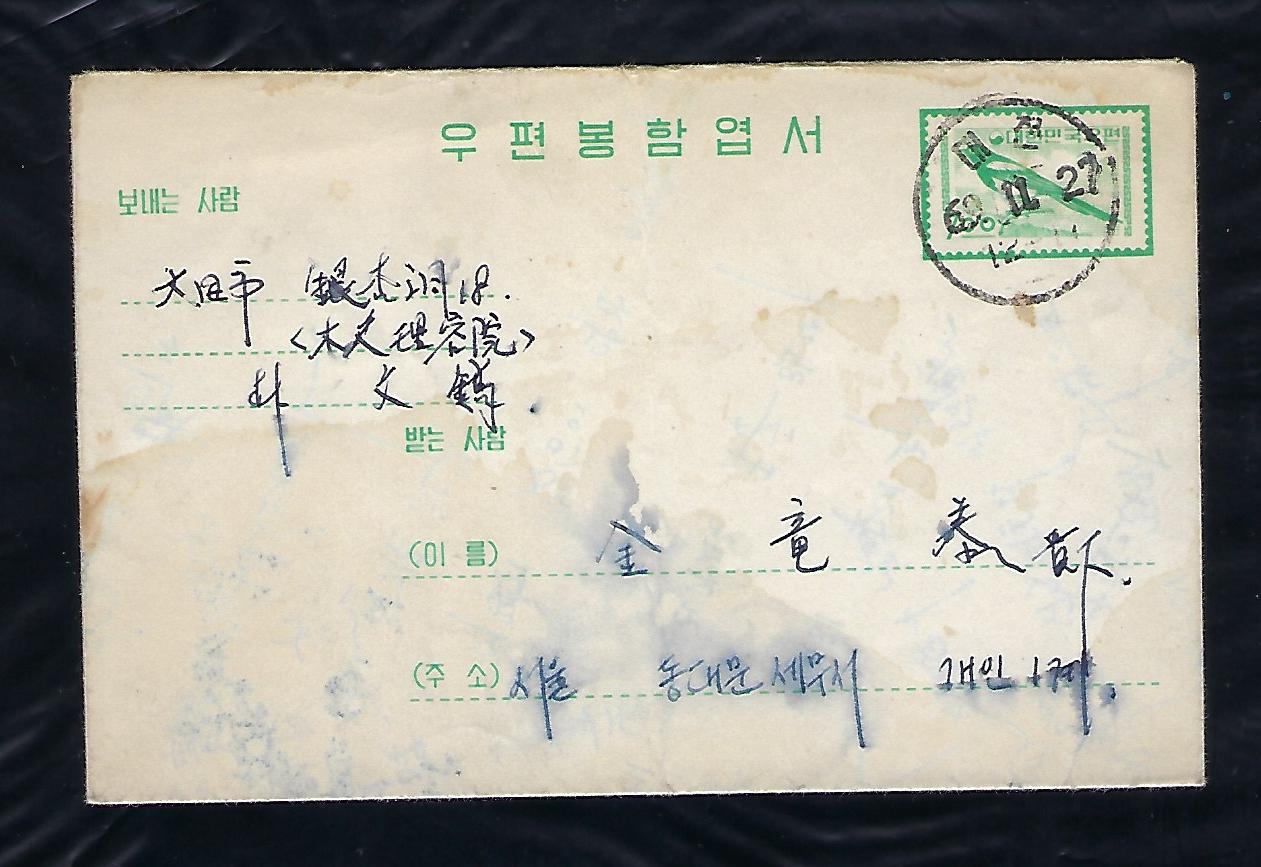 우편봉함엽서
대한민국우편
7.00
대전
69.11.27.
12
보내는 사람
大田市 銀杏洞 18.
<木夫理容院>
朴文鎬.
받는 사람
(이 름) 金竜泰 貴下.
(주 소) 서울 동대문세무서 개인 1계.